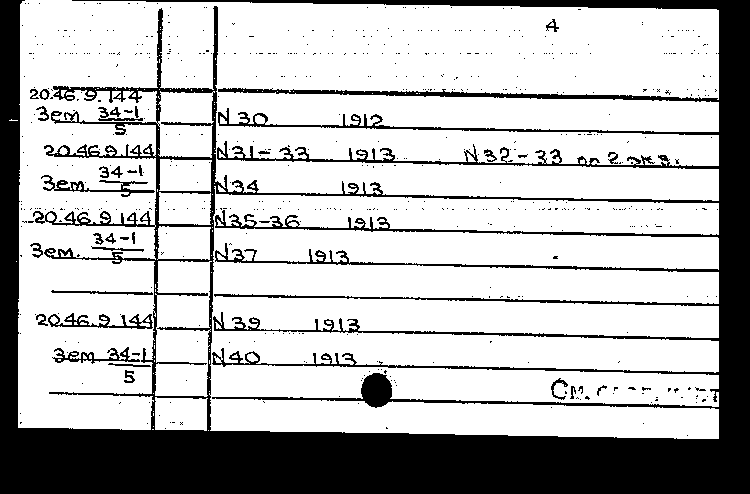 4
20.46.9.144
Зем. 34-1/5 N 30 1912
20.46.9.144 N31-33 1913 N32-33 по 2 экз.
Зем. 34-1/5 N34 1913
20.46.9.144 N35-36 1913
Зем. 34-1/5 N37 1913
20.46.9.144 N 39 1913
Зем 34-1/5 N40 1913
См.